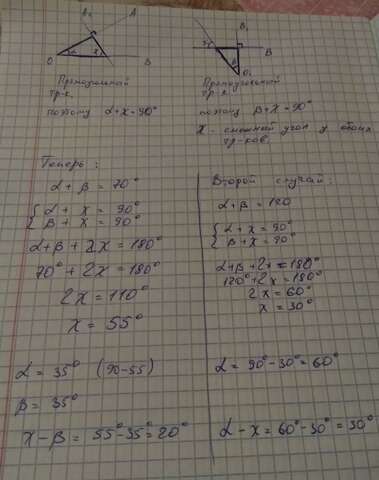 B₁ A
O α x B
Прямоугольный
тр-к.
поэтому α+x=90°
B₁
β
O₁
B
Прямоугольный
тр-к.
поэтому β+x=90°
x - смежный угол у обоих
тр-ков.
Теперь:
α + β = 70°
{ α + x = 90°
{ β + x = 90°
α+β + 2x = 180°
70° + 2x = 180°
2x = 110°
x = 55°
α = 35° (90-55)
β = 35°
x - β = 55°-35°=20°
Второй случай:
α+β = 120
{ α+x=90°
{ β+x=90°
α+β+2x=180°
120°+2x=180°
2x=60°
x=30°
α=90°-30°=60°
α - x=60°-30°=30°